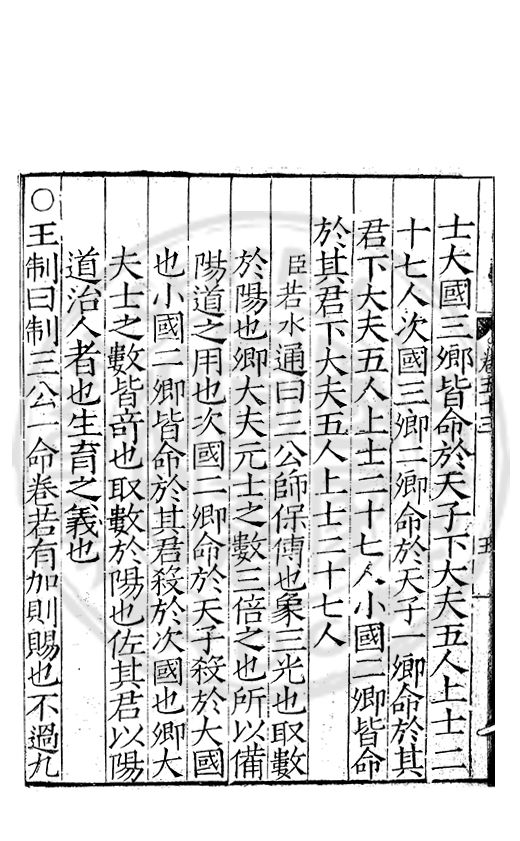 卷五十三 五
士大國三卿皆命於天子下大夫五人上士二
十七人次國三卿二卿命於天子一卿命於其
君下大夫五人上士二十七人小國二卿皆命
於其君下大夫五人上士二十七人
臣若水通曰三公師保傅也象三光也取數
於陽也卿大夫元士之數三倍之也所以備
陽道之用也次國二卿命於天子殺於大國
也小國二卿皆命於其君殺於次國也卿大
夫士之數皆竒也取數於陽也佐其君以陽
道治人者也生育之義也
○王制曰制三公一命卷若有加則賜也不過九